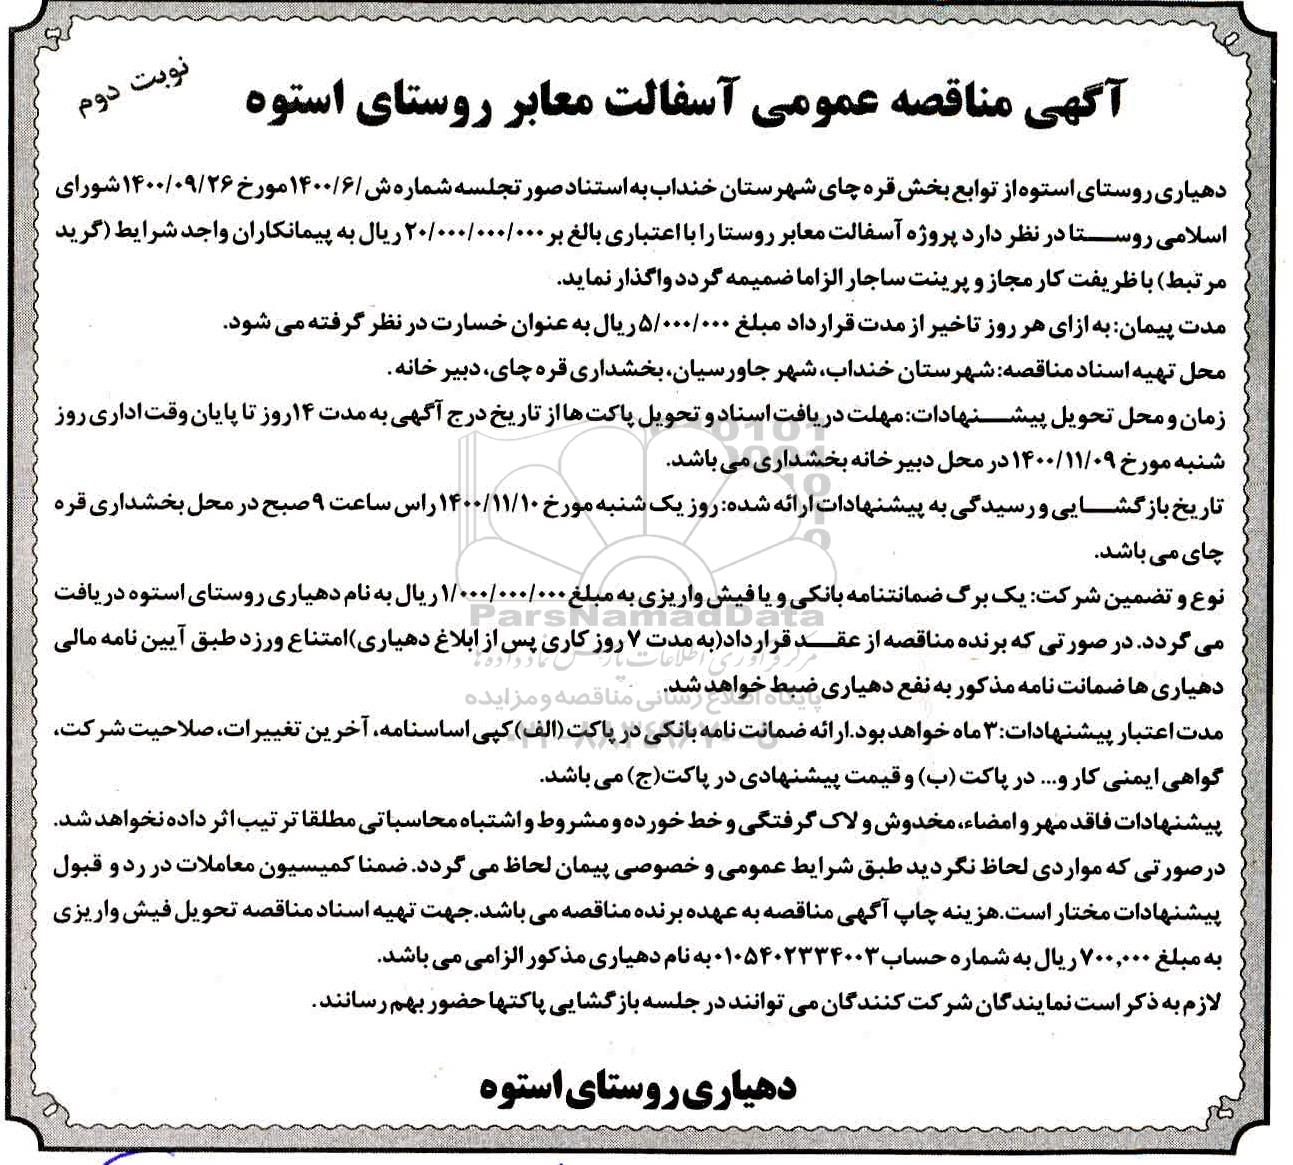 نوبت دوم
آگهی مناقصه عمومی آسفالت معابر روستای استوه
دهیاری روستای استوه از توابع بخش قره چای شهرستان خنداب به استناد صورتجلسه شماره ش /۱۴۰۰/۶ مورخ ۱۴۰۰/۰۹/۲۶ شورای
اسلامی روستا در نظر دارد پروژه آسفالت معابر روستا را با اعتباری بالغ بر ۲۰/۰۰۰/۰۰۰/۰۰۰ ریال به پیمانکاران واجد شرایط (گرید
مرتبط) با ظریفت کار مجاز و پرینت ساجار الزاما ضمیمه گردد واگذار نماید.
مدت پیمان: به ازای هر روز تاخیر از مدت قرارداد مبلغ ۵/۰۰۰/۰۰۰ ریال به عنوان خسارت در نظر گرفته می شود.
محل تهیه اسناد مناقصه: شهرستان خنداب، شهر جاورسیان، بخشداری قره چای، دبیر خانه .
زمان و محل تحویل پیشنهادات: مهلت دریافت اسناد و تحویل پاکت ها از تاریخ درج آگهی به مدت ۱۴ روز تا پایان وقت اداری روز
شنبه مورخ ۱۴۰۰/۱۱/۰۹ در محل دبیر خانه بخشداری می باشد.
تاریخ بازگشایی و رسیدگی به پیشنهادات ارائه شده: روز یک شنبه مورخ ۱۴۰۰/۱۱/۱۰ راس ساعت ۹ صبح در محل بخشداری قره
چای می باشد.
نوع و تضمین شرکت: یک برگ ضمانتنامه بانکی و یا فیش واریزی به مبلغ ۱/۰۰۰/۰۰۰/۰۰۰ ریال به نام دهیاری روستای استوه دریافت
می گردد. در صورتی که برنده مناقصه از عقد قرارداد(به مدت ۷ روز کاری پس از ابلاغ دهیاری)امتناع ورزد طبق آیین نامه مالی
دهیاری ها ضمانت نامه مذکور به نفع دهیاری ضبط خواهد شد.
مدت اعتبار پیشنهادات: ۳ ماه خواهد بود.ارائه ضمانت نامه بانکی در پاکت (الف) کپی اساسنامه، آخرین تغییرات، صلاحیت شرکت،
گواهی ایمنی کار و... در پاکت (ب) و قیمت پیشنهادی در پاکت(ج) می باشد.
پیشنهادات فاقد مهر و امضاء، مخدوش و لاک گرفتگی و خط خورده و مشروط و اشتباه محاسباتی مطلقا ترتیب اثر داده نخواهد شد.
درصورتی که مواردی لحاظ نگردید طبق شرایط عمومی و خصوصی پیمان لحاظ می گردد. ضمنا کمیسیون معاملات در رد و قبول
پیشنهادات مختار است.هزینه چاپ آگهی مناقصه به عهده برنده مناقصه می باشد.جهت تهیه اسناد مناقصه تحویل فیش واریزی
به مبلغ ۷۰۰,۰۰۰ ریال به شماره حساب ۰۱۰۵۴۰۲۳۳۴۰۰۳ به نام دهیاری مذکور الزامی می باشد.
لازم به ذکر است نمایندگان شرکت کنندگان می توانند در جلسه بازگشایی پاکتها حضور بهم رسانند .
دهیاری روستای استوه
ParsNamadData
مرکز فرآوری اطلاعات پارس نماد داده ها
پایگاه اطلاع رسانی مناقصه و مزایده